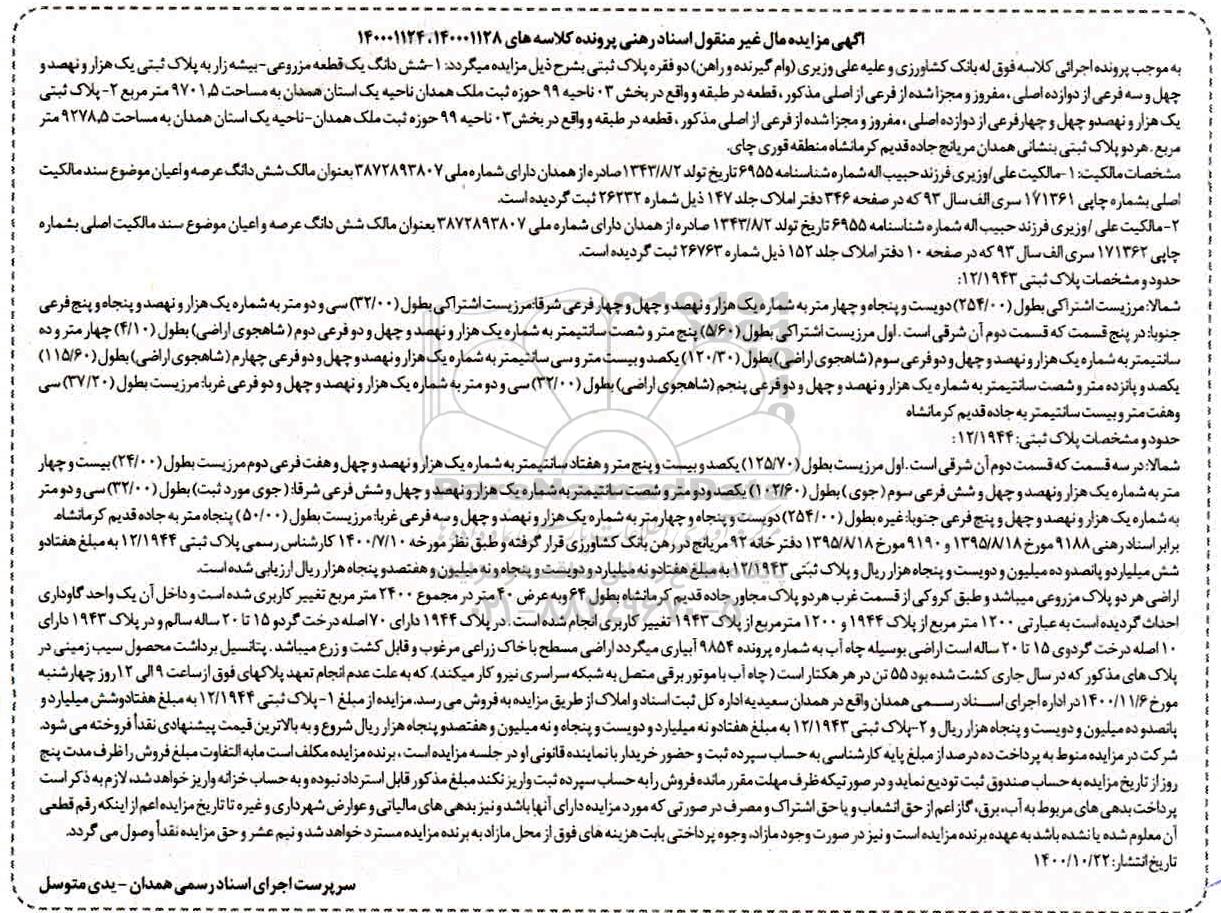 آگهی مزایده مال غیر منقول اسناد رهنی پرونده کلاسه های ۱۴۰۰۰۱۱۲۸، ۱۴۰۰۰۱۱۲۴
به موجب پرونده اجرائی کلاسه فوق له بانک کشاورزی و علیه علی وزیری (وام گیرنده و راهن) دو فقره پلاک ثبتی بشرح ذیل مزایده میگردد: ۱-شش دانگ یک قطعه مزروعی-بیشه زار به پلاک ثبتی یک هزار و نهصد و
چهل و سه فرعی از دوازده اصلی ، مفروز و مجزا شده از فرعی از اصلی مذکور ، قطعه در طبقه و واقع در بخش ۰۳ ناحیه ۹۹ حوزه ثبت ملک همدان ناحیه یک استان همدان به مساحت ۹۷۰۱,۵ متر مربع ۲- پلاک ثبتی
یک هزار و نهصدو چهل و چهارفرعی از دوازده اصلی ، مفروز و مجزا شده از فرعی از اصلی مذکور ، قطعه در طبقه و واقع در بخش۰۳ ناحیه ۹۹ حوزه ثبت ملک همدان-ناحیه یک استان همدان به مساحت ۹۲۷۸,۵ متر
مربع . هر دو پلاک ثبتی بنشانی همدان مریانج جاده قدیم کرمانشاه منطقه قوری چای.
مشخصات مالکیت: ۱-مالکیت علی /وزیری فرزند حبیب اله شماره شناسنامه ۶۹۵۵ تاریخ تولد ۱۳۴۳/۸/۲ صادره از همدان دارای شماره ملی ۳۸۷۲۸۹۳۸۰۷ بعنوان مالک شش دانگ عرصه و اعیان موضوع سند مالکیت
اصلی بشماره چاپی ۱۷۱۳۶۱ سری الف سال ۹۳ که در صفحه ۳۴۶ دفتر املاک جلد ۱۴۷ ذیل شماره ۲۶۲۳۲ ثبت گردیده است.
۲-مالکیت علی /وزیری فرزند حبیب اله شماره شناسنامه ۶۹۵۵ تاریخ تولد ۱۳۴۳/۸/۲ صادره از همدان دارای شماره ملی ۳۸۷۲۸۹۳۸۰۷ بعنوان مالک شش دانگ عرصه و اعیان موضوع سند مالکیت اصلی بشماره
چاپی ۱۷۱۳۶۲ سری الف سال ۹۳ که در صفحه ۱۰ دفتر املاک جلد ۱۵۲ ذیل شماره ۲۶۷۶۳ ثبت گردیده است.
حدود و مشخصات پلاک ثبتی ۱۲/۱۹۴۳:
شمالا: مرزیست اشتراکی بطول (۲۵۴/۰۰) دویست و پنجاه و چهار متر به شماره یک هزار و نهصد و چهل و چهار فرعی شرقا:مرزیست اشتراکی بطول (۳۲/۰۰) سی و دو متر به شماره یک هزار و نهصد و پنجاه و پنج فرعی
جنوبا: در پنج قسمت که قسمت دوم آن شرقی است . اول مرزیست اشتراکی بطول (۵/۶۰) پنج متر و شصت سانتیمتر به شماره یک هزار و نهصد و چهل و دو فرعی دوم (شاهجوی اراضی) بطول (۴/۱۰) چهار متر و ده
سانتیمتر به شماره یک هزار و نهصد و چهل و دو فرعی سوم (شاهجوی اراضی) بطول (۱۲۰/۳۰) یکصد و بیست متر و سی سانتیمتر به شماره یک هزار و نهصد و چهل و دو فرعی چهارم (شاهجوی اراضی) بطول (۱۱۵/۶۰)
یکصد و پانزده متر و شصت سانتیمتر به شماره یک هزار و نهصد و چهل و دو فرعی پنجم (شاهجوی اراضی) بطول (۳۲/۰۰) سی و دو متر به شماره یک هزار و نهصد و چهل و دو فرعی غربا: مرزیست بطول (۳۷/۲۰) سی
و هفت متر و بیست سانتیمتر به جاده قدیم کرمانشاه
حدود و مشخصات پلاک ثبتی: ۱۲/۱۹۴۴:
شمالا: در سه قسمت که قسمت دوم آن شرقی است .اول مرزیست بطول (۱۲۵/۷۰) یکصد و بیست و پنج متر و هفتاد سانتیمتر به شماره یک هزار و نهصد و چهل و هفت فرعی دوم مرزیست بطول (۲۴/۰۰) بیست و چهار
متر به شماره یک هزار و نهصد و چهل و شش فرعی سوم (جوی) بطول (۱۰۲/۶۰) یکصد و دو متر و شصت سانتیمتر به شماره یک هزار و نهصد و چهل و شش فرعی شرقا: (جوی مورد ثبت) بطول (۳۲/۰۰) سی و دو متر
به شماره یک هزار و نهصد و چهل و پنج فرعی جنوبا: غیره بطول (۲۵۴/۰۰) دویست و پنجاه و چهار متر به شماره یک هزار و نهصد و چهل و سه فرعی غربا: مرزیست بطول (۵۰/۰۰) پنجاه متر به جاده قدیم کرمانشاه.
برابر اسناد رهنی ۹۱۸۸ مورخ ۱۳۹۵/۸/۱۸ و ۹۱۹۰ مورخ ۱۳۹۵/۸/۱۸ دفتر خانه ۹۲ مریانج در رهن بانک کشاورزی قرار گرفته و طبق نظر مورخه ۱۴۰۰/۷/۱۰ کارشناس رسمی پلاک ثبتی ۱۲/۱۹۴۴ به مبلغ هفتادو
شش میلیارد و پانصدو ده میلیون و دویست و پنجاه هزار ریال و پلاک ثبتی ۱۲/۱۹۴۳ به مبلغ هفتادو نه میلیارد و دویست و پنجاه و نه میلیون و هفتصدو پنجاه هزار ریال ارزیابی شده است.
اراضی هر دو پلاک مزروعی میباشد و طبق کروکی از قسمت غرب هر دو پلاک مجاور جاده قدیم کرمانشاه بطول ۶۴ و به عرض ۴۰ متر در مجموع ۲۴۰۰ متر مربع تغییر کاربری شده است و داخل آن یک واحد گاوداری
احداث گردیده است به عبارتی ۱۲۰۰ متر مربع از پلاک ۱۹۴۴ و ۱۲۰۰ مترمربع از پلاک ۱۹۴۳ تغییر کاربری انجام شده است . در پلاک ۱۹۴۴ دارای ۷۰ اصله درخت گردو ۱۵ تا ۲۰ ساله سالم و در پلاک ۱۹۴۳ دارای
۱۰ اصله درخت گردوی ۱۵ تا ۲۰ ساله است اراضی بوسیله چاه آب به شماره پرونده ۹۸۵۴ آبیاری میگردد اراضی مسطح با خاک زراعی مرغوب و قابل کشت و زرع میباشد . پتانسیل برداشت محصول سیب زمینی در
پلاک های مذکور که در سال جاری کشت شده بود ۵۵ تن در هر هکتار است (چاه آب با موتور برقی متصل به شبکه سراسری نیرو کار میکند). که به علت عدم انجام تعهد پلاکهای فوق از ساعت ۹ الی ۱۲ روز چهارشنبه
مورخ ۱۴۰۰/۱۱/۶ در اداره اجرای اسناد رسمی همدان واقع در همدان سعیدیه اداره کل ثبت اسناد و املاک از طریق مزایده به فروش می رسد. مزایده از مبلغ ۱- پلاک ثبتی ۱۲/۱۹۴۴ به مبلغ هفتادوشش میلیارد و
پانصدو ده میلیون و دویست و پنجاه هزار ریال و ۲-پلاک ثبتی ۱۲/۱۹۴۳ به مبلغ هفتادو نه میلیارد و دویست و پنجاه و نه میلیون و هفتصدو پنجاه هزار ریال شروع و به بالاترین قیمت پیشنهادی نقداً فروخته می شود.
شرکت در مزایده منوط به پرداخت ده درصد از مبلغ پایه کارشناسی به حساب سپرده ثبت و حضور خریدار یا نماینده قانونی او در جلسه مزایده است ، برنده مزایده مکلف است مابه التفاوت مبلغ فروش را ظرف مدت پنج
روز از تاریخ مزایده به حساب صندوق ثبت تودیع نماید و در صورتیکه ظرف مهلت مقرر مانده فروش را به حساب سپرده ثبت واریز نکند مبلغ مذکور قابل استرداد نبوده و به حساب خزانه واریز خواهد شد، لازم به ذکر است
پرداخت بدهی های مربوط به آب، برق، گاز اعم از حق انشعاب و یا حق اشتراک و مصرف در صورتی که مورد مزایده دارای آنها باشد و نیز بدهی های مالیاتی و عوارض شهرداری و غیره تا تاریخ مزایده اعم از اینکه رقم قطعی
آن معلوم شده یا نشده باشد به عهده برنده مزایده است و نیز در صورت وجود مازاد، وجوه پرداختی بابت هزینه های فوق از محل مازاد به برنده مزایده مسترد خواهد شد و نیم عشر و حق مزایده نقداً وصول می گردد.
تاریخ انتشار: ۱۴۰۰/۱۰/۲۲
سرپرست اجرای اسناد رسمی همدان - یدی متوسل
ParsNamadData
۰۲۱-۸۸۳۴۹۶۷۰-۵